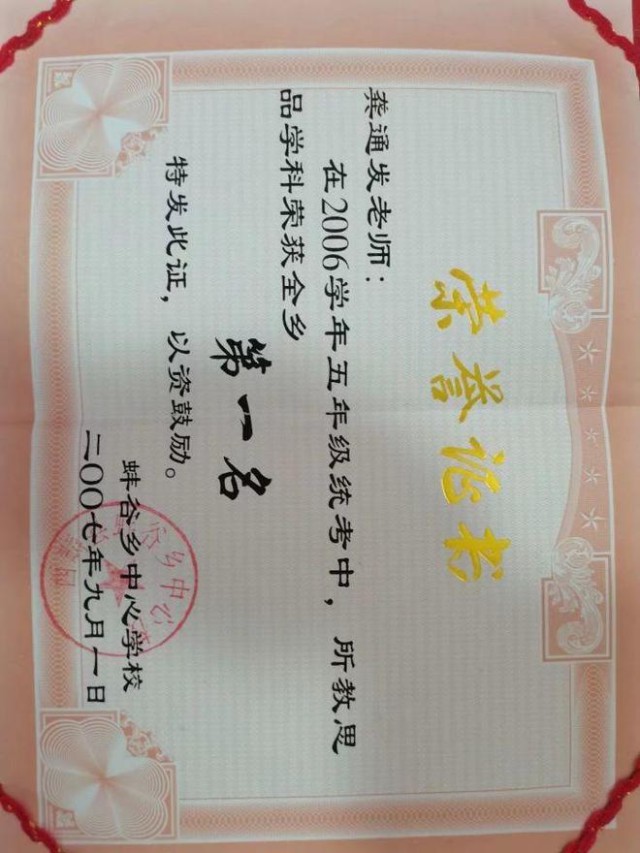 荣誉证书
龚通发老师：
在2006学年五年级统考中，所教思
品学科荣获全乡
第一名
特发此证，以资鼓励。
蚌谷乡中心学校
二00七年九月一日
谷乡中心